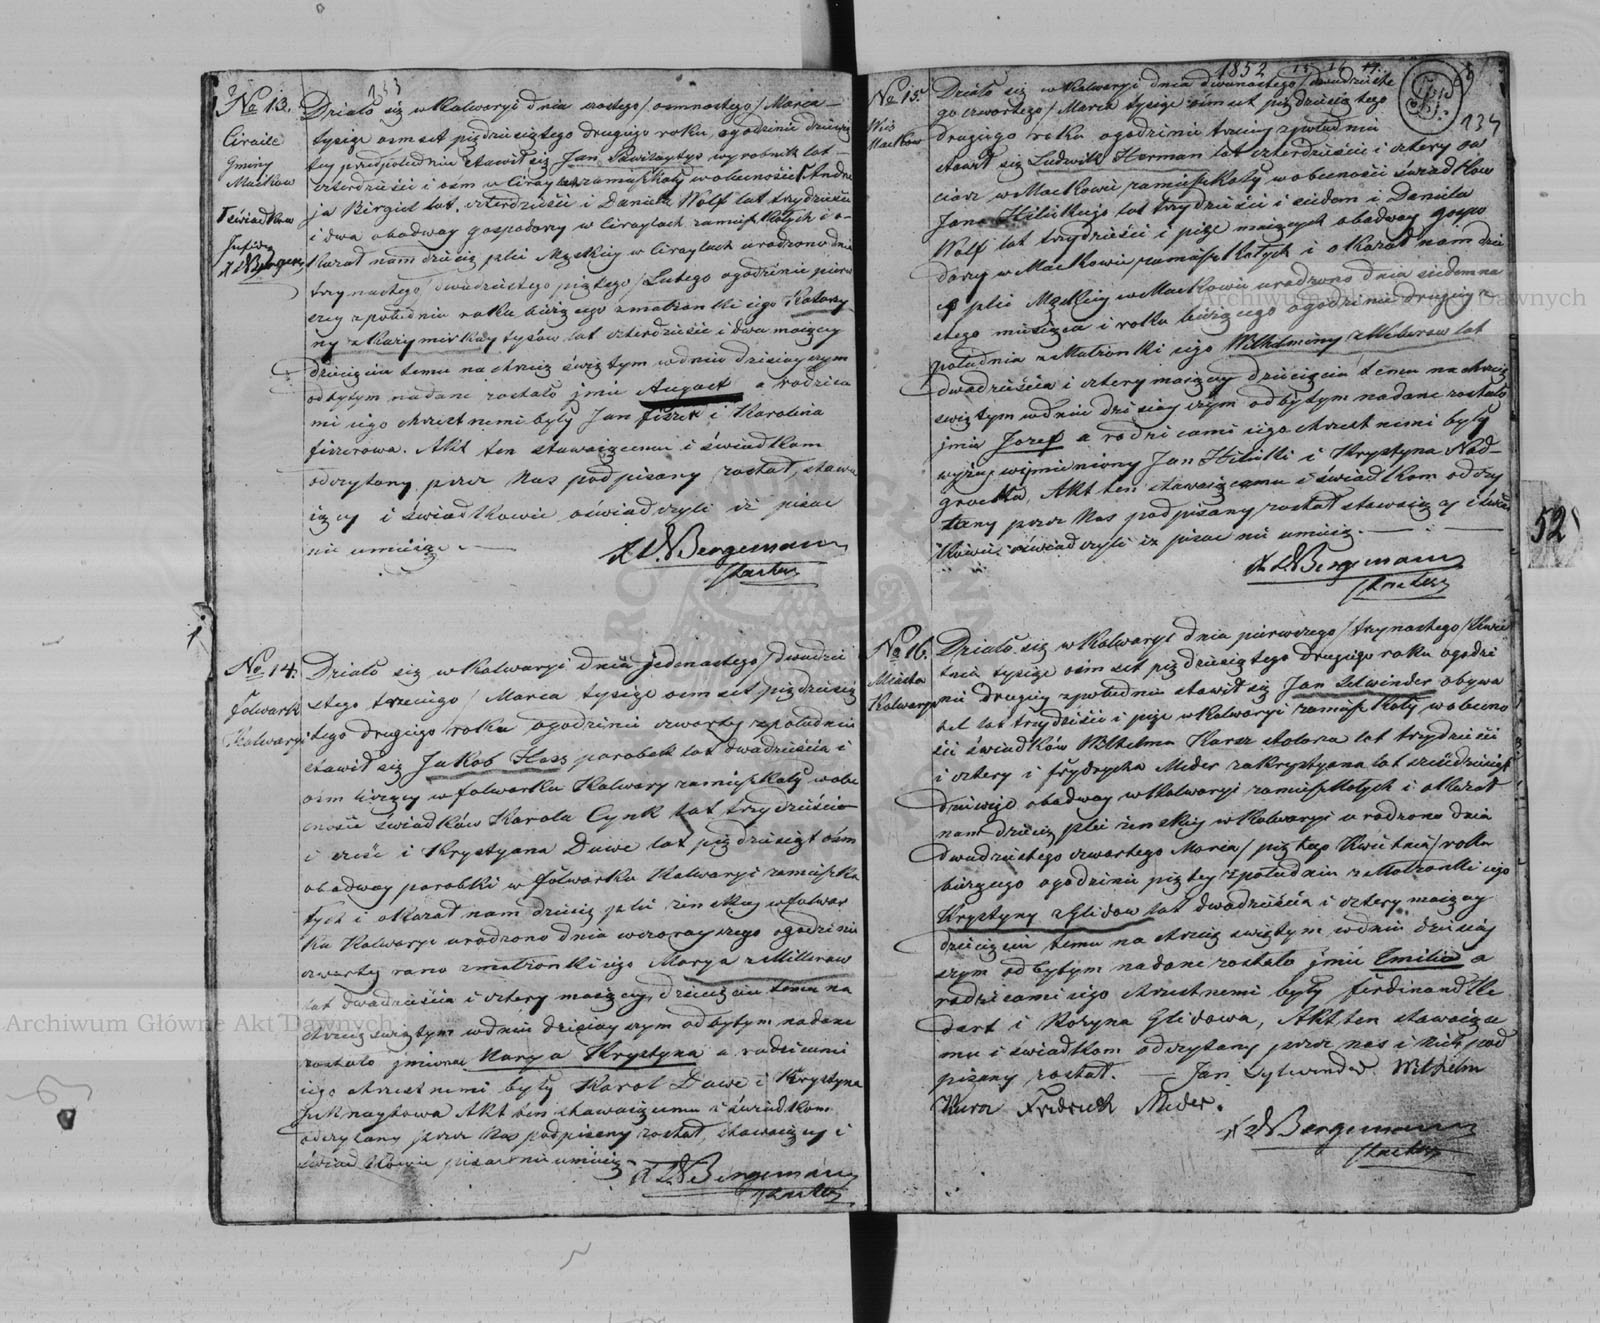 133
No 13.
Ciraile
Gminy
Maćkow
Działo się w Kalwaryi dnia szostego / osmnastego / Marca
tysiąc osmset pięдziesiątego drugiego roku, o godzinie dziewią
tey przedpołudniem stawił się Jan wyrobnik lat
czterdzieści i ośm w Ciraylach zamieszkały w obecności Andrze
ja Birgiel lat czterdzieści i Daniela Wolf lat trzydzieści
i dwa obadway gospodarzy w Ciraylach zamieszkałych i o-
kazał nam dziecię płci Męzkiey w Ciraylach urodzone dnia
trzynastego / dwudziestego piątego / Lutego o godzinie pierw
szey z południa roku bieżącego z małżonki iego Katarzy
ny z lat czterdzieści i dwa maiącey
dziecięciu temu na chrzcie świętym w dniu dzisieyszym
odbytym nadane zostało imie August a rodzica
mi iego chrzestnemi były Jan fiszer i Karolina
fiszerowa. Akt ten stawaiącemu i świadkom
odczytany przez Nas podpisany został, stawa
iący i świadkowie oświadczyli iż pisać
nie umieią.
Bergemann
No 14.
folwark
Kalwaryi
Działo się w Kalwaryi dnia jedenastego / dwudzie
stego trzeciego / Marca tysiąc osmset pięдziesią
tego drugiego roku o godzinie czwartey z południa
stawił się Jakob Hass parobek lat dwadzieścia i
ośm liczący w folwarku Kalwary zamieszkały w obe
cności świadków Karola Cynk lat trzydzieścia
i sześć i Krystyana Duwe lat pięдziesiąt ośm
obadway parobki w folwarku Kalwaryi zamieszka
łych i okazał nam dziecię płci żinskiey w folwar
ku Kalwaryi urodzone dnia wczorayszego o godzinie
czwartey rano z małżonki iego Marya z Millerow
lat dwadzieścia i cztery maiącey, dziecięciu temu na
chrzcie świętym w dniu dzisieyszym odbytym nadane
zostało imiona Marya Krystyna a rodzicami
iego chrzestnemi były Karol Duwe i Krystyna
Akt ten stawaiącemu i świadkom
odczytany przez Nas podpisany został, stawaiący i
świadkowie pisać nie umieią
Bergemann
1852
134
No 15.
Wieś
Maćkow
Działo się w Kalwaryi dnia dwunastego / dwudzieste
go czwartego / Marca tysiąc ośmset pięдziesiątego
drugiego roku o godzinie trzeciey z południa
stawił się Ludwik Herman lat czterdzieści i cztery
w Maćkowie zamieszkały w obecności świadków
Jana lat trzydzieści i siedem i Daniela
Wolf lat trzydzieści i pięć maiących obadway gospo
darzy w Maćkowie zamieszkałych i okazał nam dzie
cę płci Męzkiey w Maćkowie urodzone dnia siedemna
stego miesiąca i roku bieżącego o godzinie drugiey z
południa z Małżonki iego Wilhelminy z Weberow lat
dwadzieścia i cztery maiącey dziecięciu temu na chrzcie
świętym w dniu dzisieyszym odbytym nadane zostało
imie Jozef a rodzicami iego chrzestnemi były
wyżey wymieniony Jan i Krystyna
Akt ten stawaiącemu i świadkom odczy
tany przez Nas podpisany został stawaiący i świad
kowie oświadczyli iż pisać nie umieią.
Bergemann
52
No 16.
Miasto
Kalwarya
Działo się w Kalwaryi dnia pierwszego / trzynastego / Kwie
tnia tysiąc ośmset pięдziesiątego drugiego roku o godzi
nie drugiey z południa stawił się Jan Selwinder obywa
tel lat trzydzieści i pięć w Kalwaryi zamieszkały w obecno
ści świadków Wilhelma Kurz stolarza lat trzydzieści
i cztery i frydrycha Meder zakrystyana lat sześćdziesiąt
dziewięć obadway w Kalwaryi zamieszkałych i okazał
nam dziecię płci żinskiey w Kalwaryi urodzone dnia
dwudziestego czwartego Marca / piątego Kwietnia / roku
bieżącego o godzinie piątey z południa z Małżonki iego
Krystyny z Glidow lat dwadzieścia i cztery maiącey
dziecięciu temu na chrzcie świętym w dniu dzisiey
szym odbytym nadane zostało imie Emilia a
rodzicami iego chrzestnemi były ferdinand
i Rozyna Glidowa, Akt ten stawaiące
mu i świadkom odczytany przez nas i nich pod
pisany został. — Jan Sylwinder Wilhelm
Kurz Fridrich Meder.
Bergemann
Archiwum Główne Akt Dawnych
Archiwum Główne Akt Dawnych